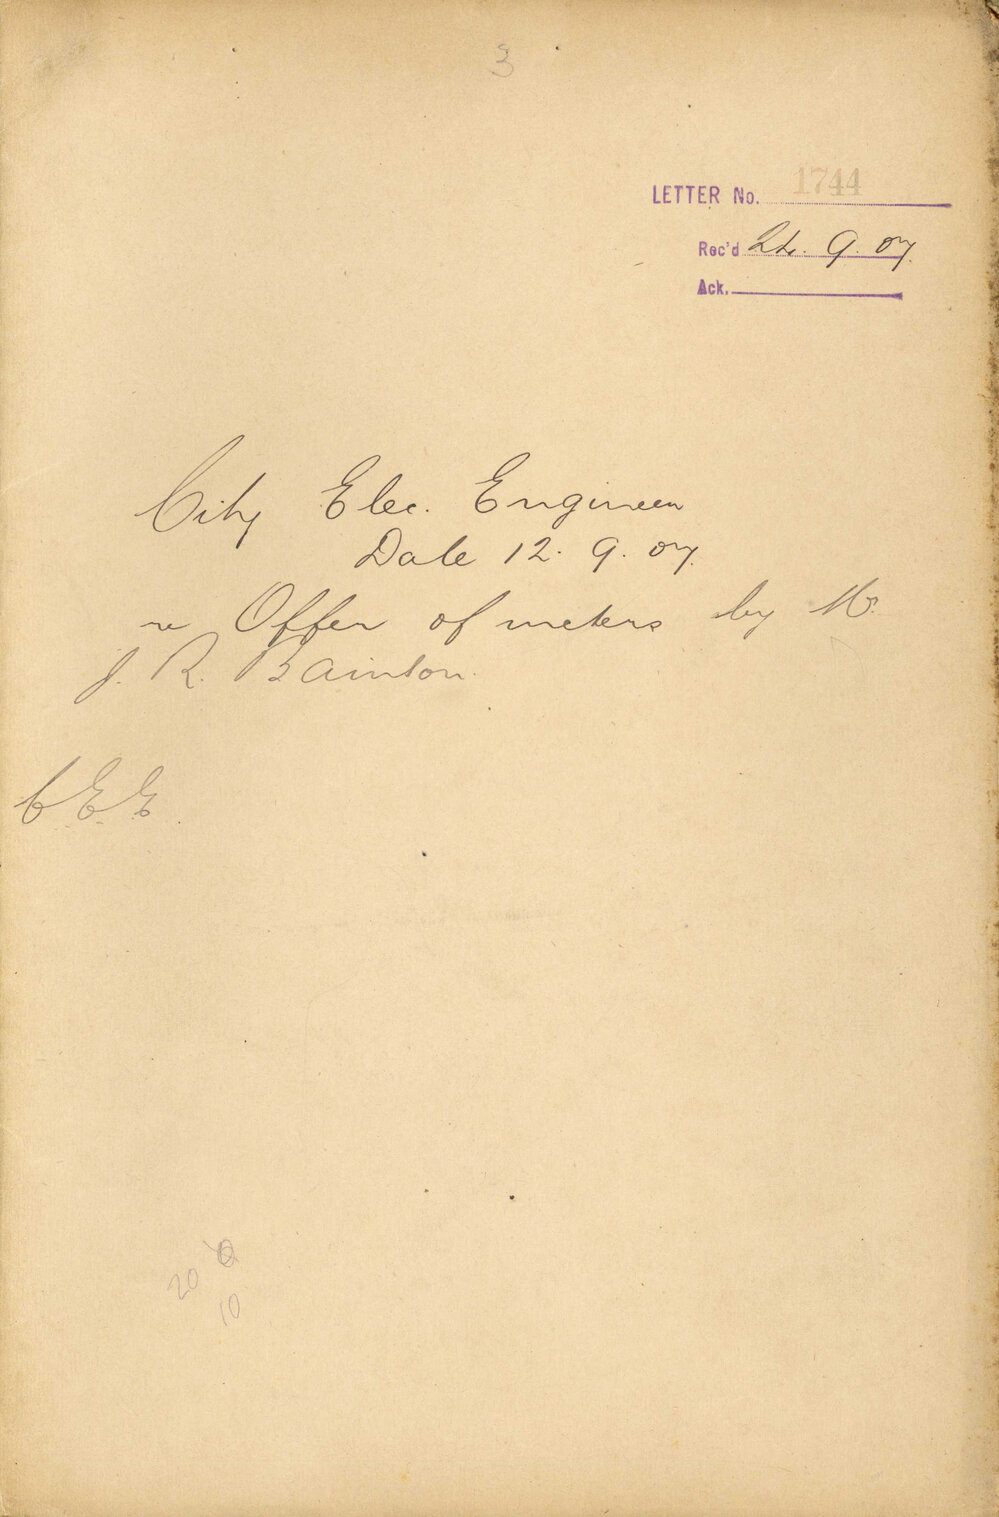 3
LETTER No. 1744
Rec'd 24. 9. 07.
Ack.
City Elec. Engineer
Date 12. 9. 07.
re Offer of meters by Mr.
J. R. Bainton.
C.E.E.
20
10